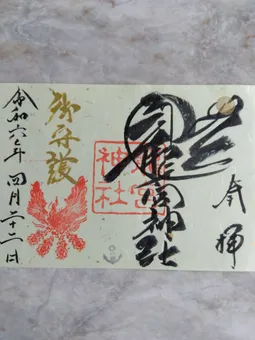 奉拝
龍宮神社
神社
御守護
令和六年 四月二十二日